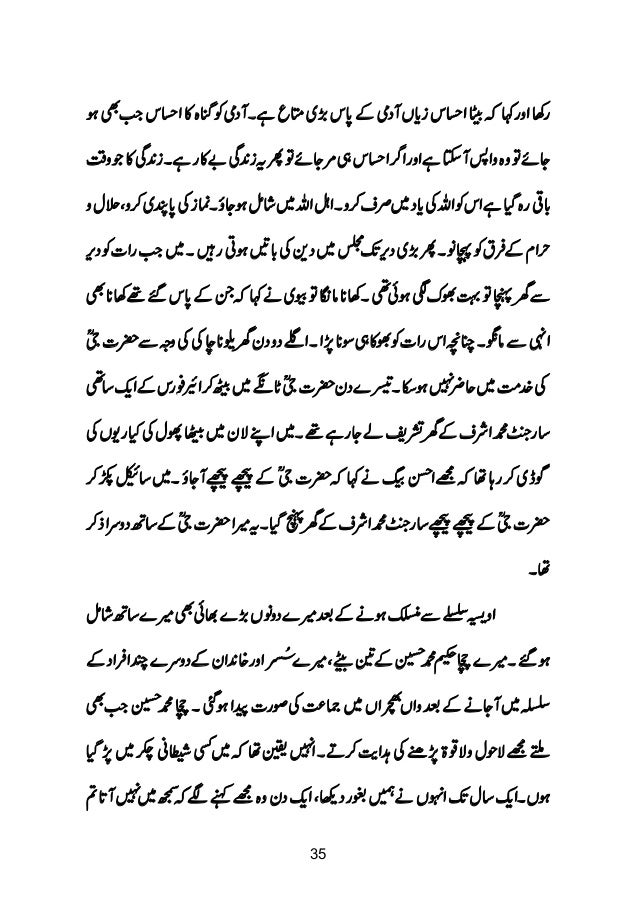 رکھا اور کہا کہ بیٹا احساس زیاں آدمی کے پاس بڑی متاع ہے۔ آدمی کو گناہ کا احساس جب بھی ہو
جائے تو وہ واپس آسکتا ہے اور اگر احساس ہی مر جائے تو پھر یہ زندگی بے کار ہے۔ زندگی کا جو وقت
باقی رہ گیا ہے اس کو اللہ کی یاد میں صرف کرو۔ اہل اللہ میں شامل ہو جاؤ۔ نماز کی پابندی کرو، حلال و
حرام کے فرق کو پہچانو۔ پھر بڑی دیر تک مجلس میں دین کی باتیں ہوتی رہیں ۔ میں جب رات کو دیر
سے گھر پہنچا تو بہت بھوک لگی ہوئی تھی ۔ کھانا مانگا تو بیوی نے کہا کہ جن کے پاس گئے تھے کھانا بھی
انہی سے مانگو۔ چنانچہ اس رات کو بھوکا ہی سونا پڑا ۔ اگلے دو دن گھریلو ناچاکی کی وجہ سے حضرت جیؒ
کی خدمت میں حاضر نہیں ہوسکا۔ تیسرے دن حضرت جیؒ تانگے میں بیٹھ کر ائیر فورس کے ایک ساتھی
سارجنٹ محمد اشرف کے گھر تشریف لے جا رہے تھے ۔ میں اپنے لان میں بیٹھا پھول کی کیاریوں کی
گوڈی کر رہا تھا کہ مجھے احسن بیگ نے کہا کہ حضرت جیؒ کے پیچھے پیچھے آجاؤ ۔ میں سائیکل پکڑ کر
حضرت جیؒ کے پیچھے پیچھے سارجنٹ محمد اشرف کے گھر پہنچ گیا۔ یہ میرا حضرت جیؒ کے ساتھ دوسرا ذکر
تھا ۔
اویسیہ سلسلے سے منسلک ہونے کے بعد میرے دونوں بڑے بھائی بھی میرے ساتھ شامل
ہو گئے ۔ میرے چچا حکیم محمد حسین کے تین بیٹے ، میرے سُسر اور خاندان کے دوسرے چند افراد کے
سلسلہ میں آجانے کے بعد واں بھچراں میں جماعت کی صورت پیدا ہوگئی ۔ چچا محمد حسین جب بھی
ملتے مجھے لاحول ولا قوۃ پڑھنے کی ہدایت کرتے۔ انہیں یقین تھا کہ میں کسی شیطانی چکر میں پڑ گیا
ہوں۔ ایک سال تک انہوں نے ہمیں بغور دیکھا، ایک دن وہ مجھے کہنے لگے کہ سمجھ میں نہیں آتا تم
35